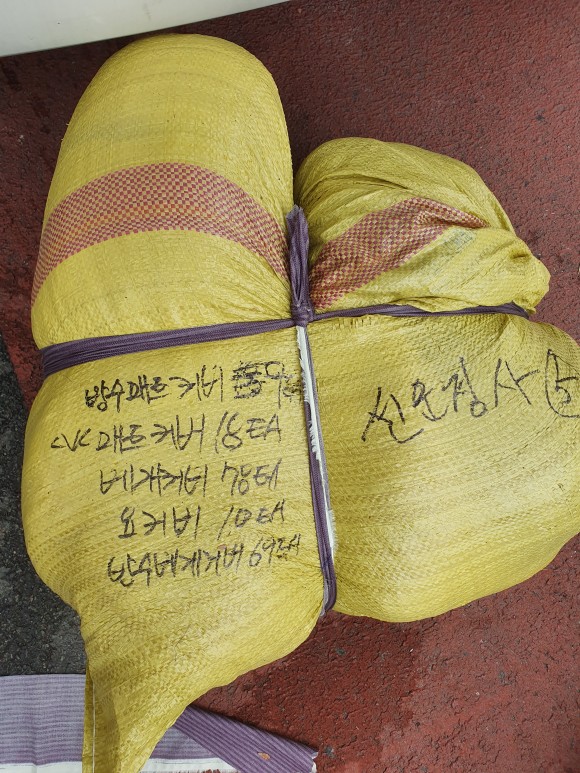 방수매트커버
CVC 매트커버 18EA
베개커버 78EA
요커버 10EA
방수베개커버 69EA
신안장사 ⑤